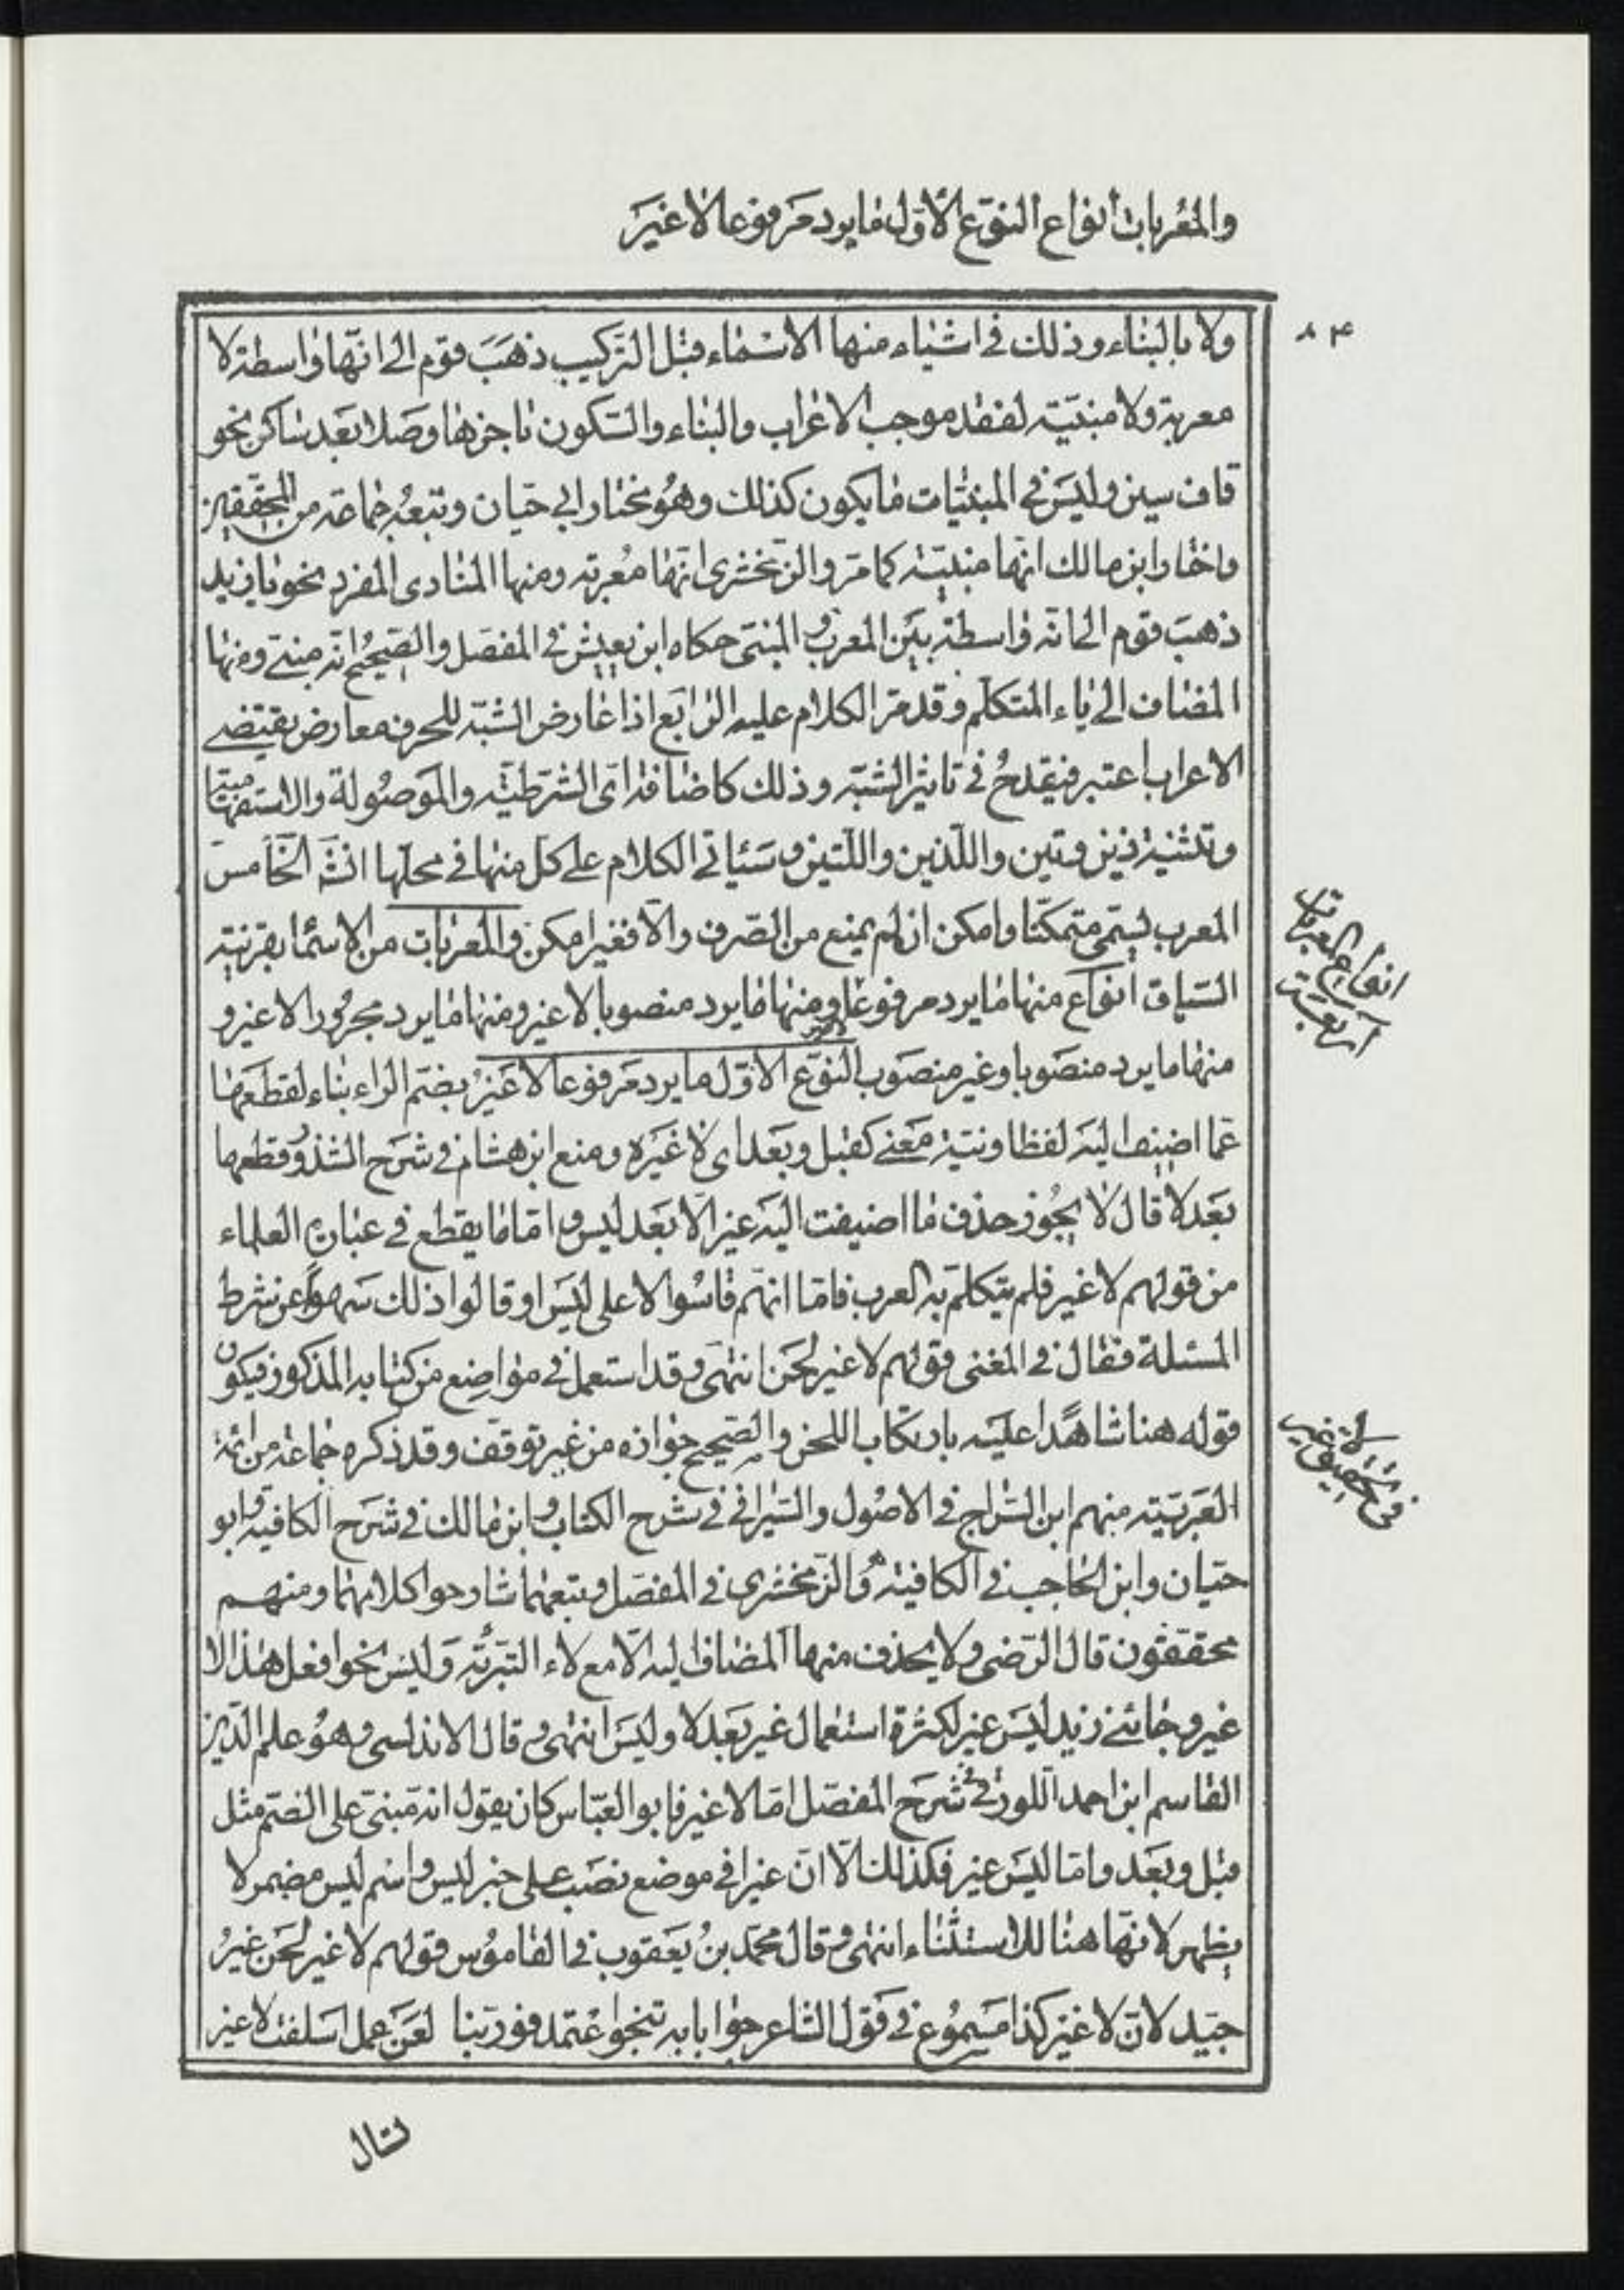 والمعربات أنواع النوع الأول ما يرد مرفوعا لا غير
٨٤
ولا بالبناء وذلك في اشياء منها الاسماء قبل التركيب ذهب قوم الى انها واسطة لا
معربة ولا مبنية لفقد موجب الاعراب والبناء والسكون ناجزها وصلا بعد ساكن نحو
قاف سين وليس في المبنيات ما يكون كذلك وهو مختار ابي حيان وتبعه جماعة من المحققين
واختار ابن مالك انها مبنية كما مر والزمخشري انها معربة ومنها المنادى المفرد نحو يا زيد
ذهب قوم الى انه واسطة بين المعرب والمبني حكاه ابن يعيش في المفصل والصحيح انه مبني ومنها
المضاف الى ياء المتكلم وقد مر الكلام عليه الرابع اذا عارض الشبه للحرف معارض يقتضي
الاعراب اعتبر فيقدح في تاثير الشبه وذلك كاضافة اي الشرطية والموصولة والاستفهامية
وتثنية ذين وتين واللذين واللتين وسياتي الكلام على كل منها في محلها انشه الخامس
المعرب يسمى متمكنا وامكن ان لم يمنع من الصرف والا فغير امكن والمعربات من الاسما بقرينة
السياق انواع منها ما يرد مرفوعا لا غير ومنها ما يرد منصوبا لا غير ومنها ما يرد مجرورا لا غير و
منها ما يرد منصوبا وغير منصوب النوع الاول ما يرد مرفوعا لا غير بضم الراء بناء لقطعها
عما اضيف اليه لفظا ونية معنى كقبل وبعد اي لا غيره ومنع ابن هشام في شرح الشذور قطعها
بعد لا قال لا يجوز حذف ما اضيفت اليه غير الا بعد ليس واما ما يقطع في عبارة العلماء
من قولهم لا غير فلم يتكلم به العرب فاما انهم قاسوا لا على ليس او قالوا ذلك سهوا عن شرط
المسئلة فقال في المغني قولهم لا غير لحن انتهى وقد استعمل في مواضع من كتابه المذكور فيكون
قوله هنا شاهدا عليه بارتكاب اللحن والصحيح جوازه من غير توقف وقد ذكره جماعة من ائمة
العربية منهم ابن السراج في الاصول والسيرافي في شرح الكتاب وابن مالك في شرح الكافية وابو
حيان وابن الحاجب في الكافية والزمخشري في المفصل وتبعهما شارحوا كلامهما ومنهم
محققون قال الرضي ولا يحذف منها المضاف اليه الا مع لاء التبرئة وليس نحو افعل هذا لا
غير وجائني زيد ليس غير لكثرة استعمال غير بعد لا وليس انتهى وقال الاندلسي وهو علم الدين
القاسم ابن احمد اللورقي في شرح المفصل اما لا غير فابو العباس كان يقول انه مبني على الضم مثل
قبل وبعد واما ليس غير فكذلك الا ان غيرا في موضع نصب على خبر ليس واسم ليس مضمر لا
يظهر لانها هنا للاستثناء انتهى وقال محمد بن يعقوب في القاموس قولهم لا غير لحن غير
جيد لان لا غير كذا مسموع في قول الشاعر جوابا به تنجو اعتمد فوربنا لعن عمل اسلفت لا غير
انواع المعربات
اربعة
في تحقيق
لا غير
تسال